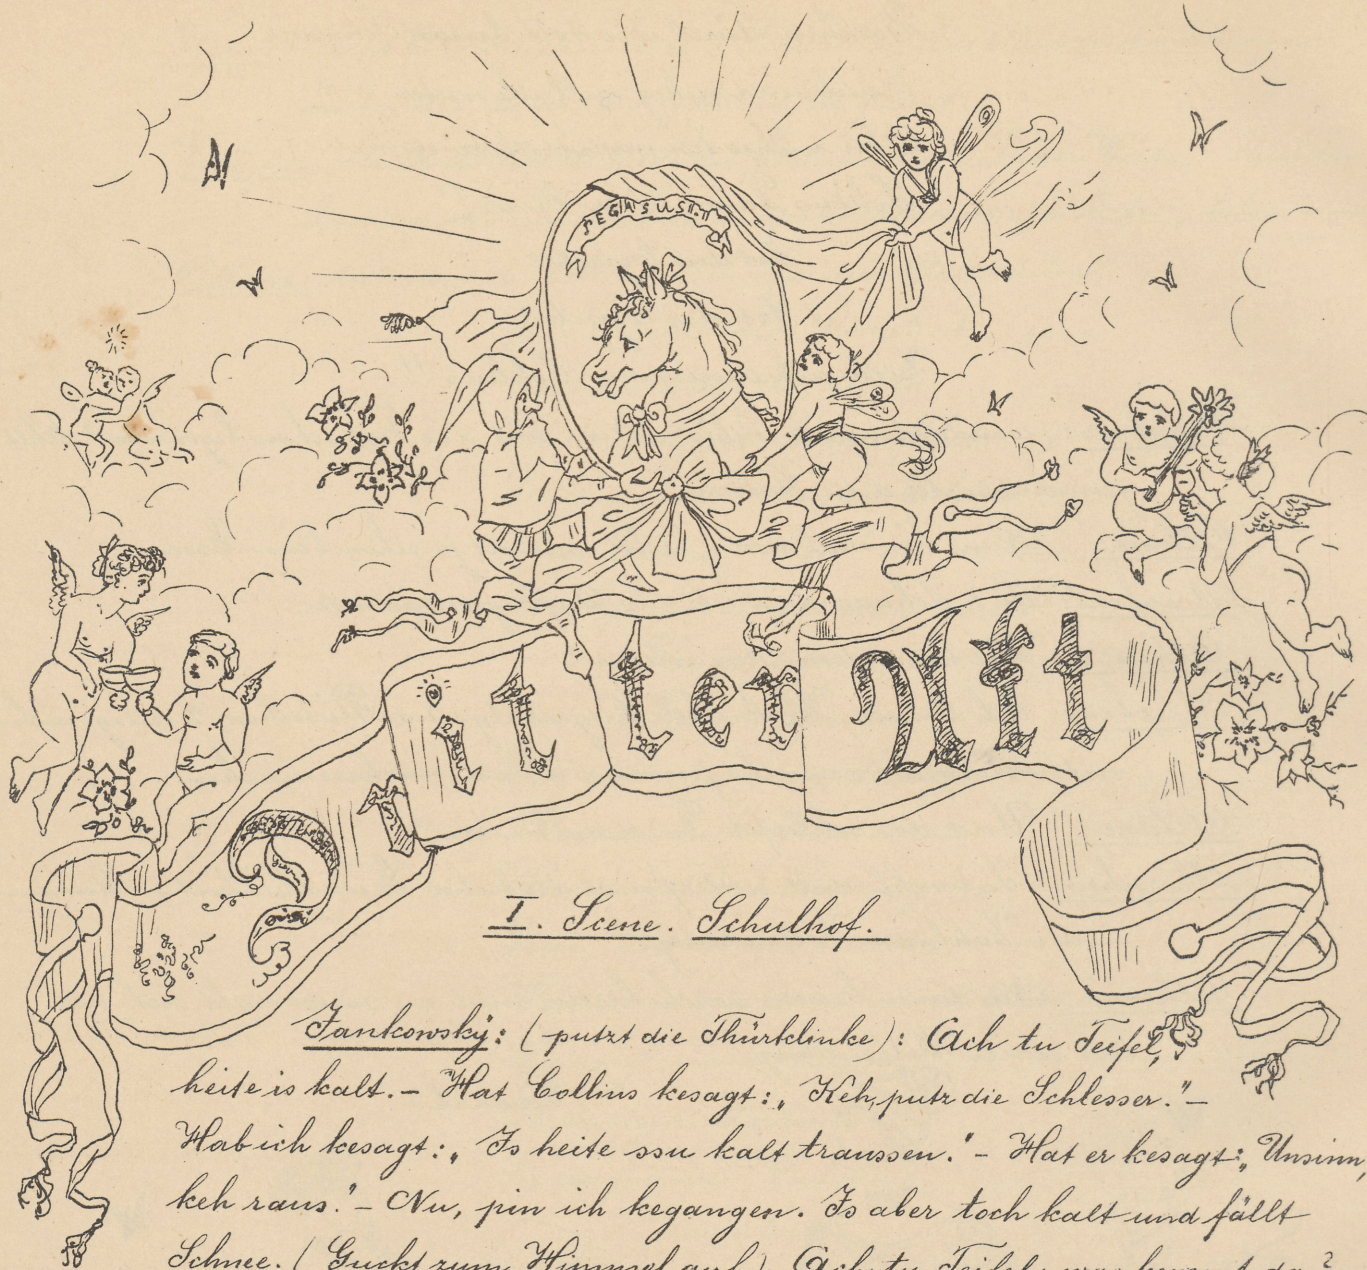 PEGASUS II.
Dritter Akt
I. Scene. Schulhof.
Jankowský: (putzt die Thürklinke): Ach tu Teifel,
heite is kalt. – Hat Collins kesagt: „Keh, putz die Schlesser." –
Hab ich kesagt: „Is heite ssu kalt traussen." – Hat er kesagt: „Unsinn,
keh raus." – Nu, pin ich kegangen. Is aber toch kalt und fällt
Schnee. (Guckt zum Himmel auf) Ach tu Teifel, was